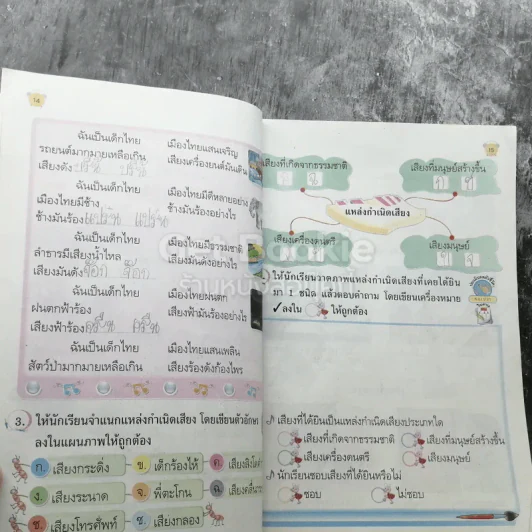 14
ฉันเป็นเด็กไทย เมืองไทยแสนเจริญ
รถยนต์มากมายเหลือเกิน เสียงเครื่องยนต์มันเดิน
เสียงดัง ปริ้น ปริ้น
ฉันเป็นเด็กไทย เมืองไทยมีดีหลายอย่าง
เมืองไทยมีช้าง ช้างมันร้องอย่างไร
ช้างมันร้อง แปร๋น แปร๋น
ฉันเป็นเด็กไทย เมืองไทยมีธรรมชาติ
ลำธารมีเสียงน้ำไหล เสียงมันดังอย่างไร
เสียงมันดัง จ๊อก จ๊อก
ฉันเป็นเด็กไทย เมืองไทยฝนตก
ฝนตกฟ้าร้อง เสียงฟ้ามันร้องอย่างไร
เสียงฟ้าร้อง ครืน ครืน
ฉันเป็นเด็กไทย เมืองไทยแสนเพลิน
สัตว์ป่ามากมายเหลือเกิน เสียงร้องดังก้องไพร
3. ให้นักเรียนจำแนกแหล่งกำเนิดเสียง โดยเขียนตัวอักษร
ลงในแผนภาพให้ถูกต้อง
ก. เสียงกระดิ่ง ข. เด็กร้องไห้ ค.
ง. เสียงระนาด จ. พี่ตะโกน ฉ.
ช. เสียงโทรศัพท์ ซ. เสียงกลอง
15
เสียงที่เกิดจากธรรมชาติ เสียงที่มนุษย์สร้างขึ้น
แหล่งกำเนิดเสียง
เสียงเครื่องดนตรี เสียงมนุษย์
ให้นักเรียนวาดภาพแหล่งกำเนิดเสียงที่เคยได้ยิน
มา 1 ชนิด แล้วตอบคำถาม โดยเขียนเครื่องหมาย
✓ ลงใน ให้ถูกต้อง
เสียงที่ได้ยินเป็นแหล่งกำเนิดเสียงประเภทใด
เสียงที่เกิดจากธรรมชาติ เสียงที่มนุษย์สร้างขึ้น
เสียงเครื่องดนตรี เสียงมนุษย์
นักเรียนชอบเสียงที่ได้ยินหรือไม่
ชอบ ไม่ชอบ